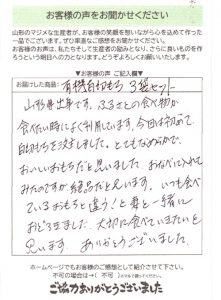 お客様の声をお聞かせください
山形のマジメな生産者が、お客様の笑顔を想いながら心を込めて作った
一品でございます。ぜひ率直なご感想をお聞かせください。
お客様のお声は、私たちそして生産者の励みとなり、さらに良いものを作
ろうという明日への力となります。どうぞよろしくお願いいたします。
▼お客様の声 ご記入欄▼
お届けした商品: 有機白切りもち 3袋セット
山形県出身です。ふるさとの食べ物が
食べたい時によく利用しています。今回は初めて
白切もちを注文しました。とてもなめらかで、
おいしいおもちだと思いました。お汁に入れて
みたのですが絶品だと思います。いつも食べ
ているおもちと違う!と母と一緒に
おどろきました。大切に食べていきたいと
思います。ありがとうございました。
ホームページでもお客様のご感想として紹介させて下さい。
不可の場合は→( 不可 )
ご協力ありがとうございました